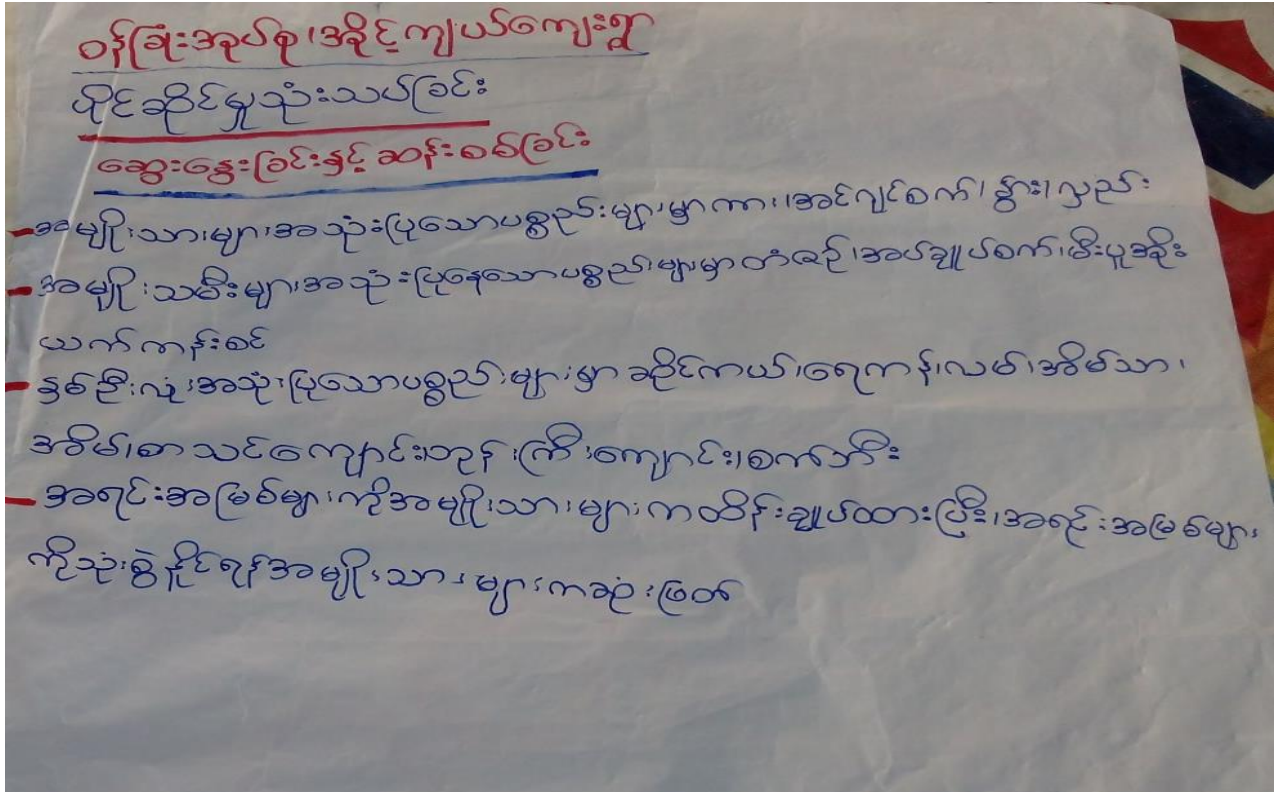 ဝန်ခြုံးအုပ်စု၊အနိုင့်ကျယ်ကျေးရွာ
ပိုင်ဆိုင်မှုသုံးသပ်ခြင်း
ဆွေးနွေးခြင်းနှင့်ဆန်းစစ်ခြင်း
-အမျိုးသားများအသုံးပြုသောပစ္စည်းများမှာကား၊အင်ဂျင်စက်၊နွား၊လှည်း
-အမျိုးသမီးများအသုံးပြုနေသောပစ္စည်းများမှာတံစဉ်၊အပ်ချုပ်စက်၊မီးပူအိုး
ယက်ကန်းစင်
-နှစ်ဦးလုံးအသုံးပြုသောပစ္စည်းများမှာဆိုင်ကယ်၊ရေကန်၊လမ်၊အိမ်သာ၊
အိမ်၊စာသင်ကျောင်း၊ဘုန်းကြီးကျောင်း၊စက်ဘီး
-အရင်းအမြစ်များကိုအမျိုးသားများကထိန်းချုပ်ထားပြီး၊အရင်းအမြစ်များ
ကိုသုံးစွဲနိုင်ရန်အမျိုးသားများကဆုံးဖြတ်